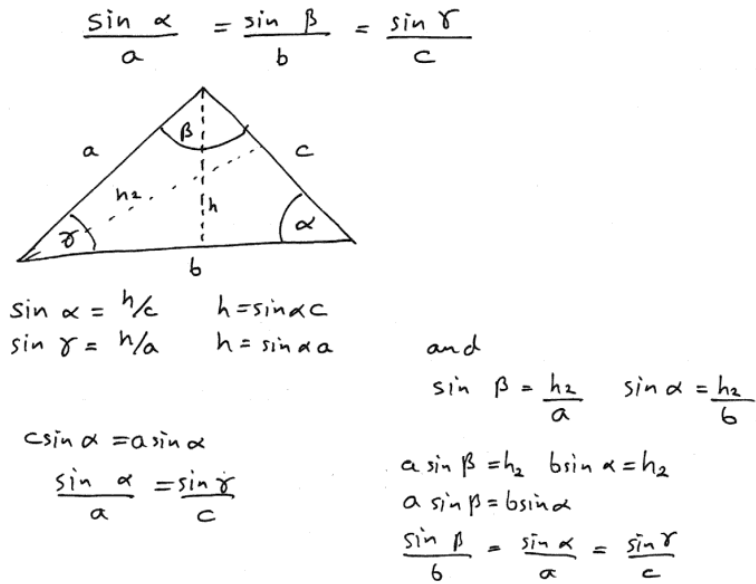 sin α / a = sin β / b = sin γ / c
β
a
c
h₂
h
γ
α
b
sin α = h/c h = sin α c
sin γ = h/a h = sin α a
c sin α = a sin α
sin α / a = sin γ / c
and
sin β = h₂ / a sin α = h₂ / b
a sin β = h₂ b sin α = h₂
a sin β = b sin α
sin β / b = sin α / a = sin γ / c